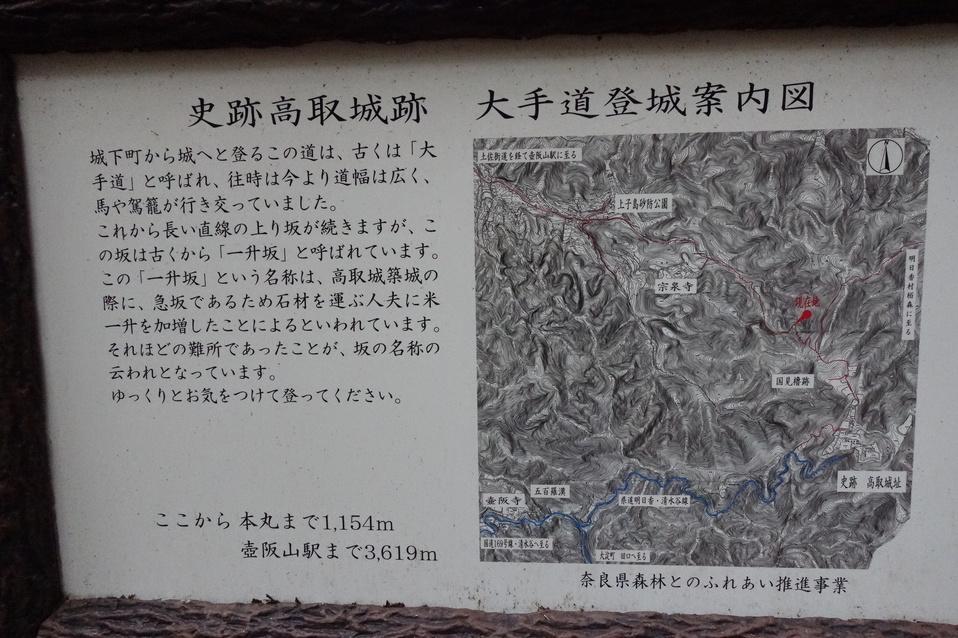 史跡高取城跡　大手道登城案内図
城下町から城へと登るこの道は、古くは「大
手道」と呼ばれ、往時は今より道幅は広く、
馬や駕籠が行き交っていました。
これから長い直線の上り坂が続きますが、こ
の坂は古くから「一升坂」と呼ばれています。
この「一升坂」という名称は、高取城築城の
際に、急坂であるため石材を運ぶ人夫に米
一升を加増したことによるといわれています。
それほどの難所であったことが、坂の名称の
云われとなっています。
ゆっくりとお気をつけて登ってください。
ここから 本丸まで1,154m
壺阪山駅まで3,619m
土佐街道を経て壺阪山駅に至る
上子島砂防公園
宗泉寺
現在地
明日香村栢森に至る
国見櫓跡
史跡 高取城址
壺阪寺
五百羅漢
県道明日香・清水谷線
国道169号線・清水谷へ至る
大淀町 田口へ至る
奈良県森林とのふれあい推進事業